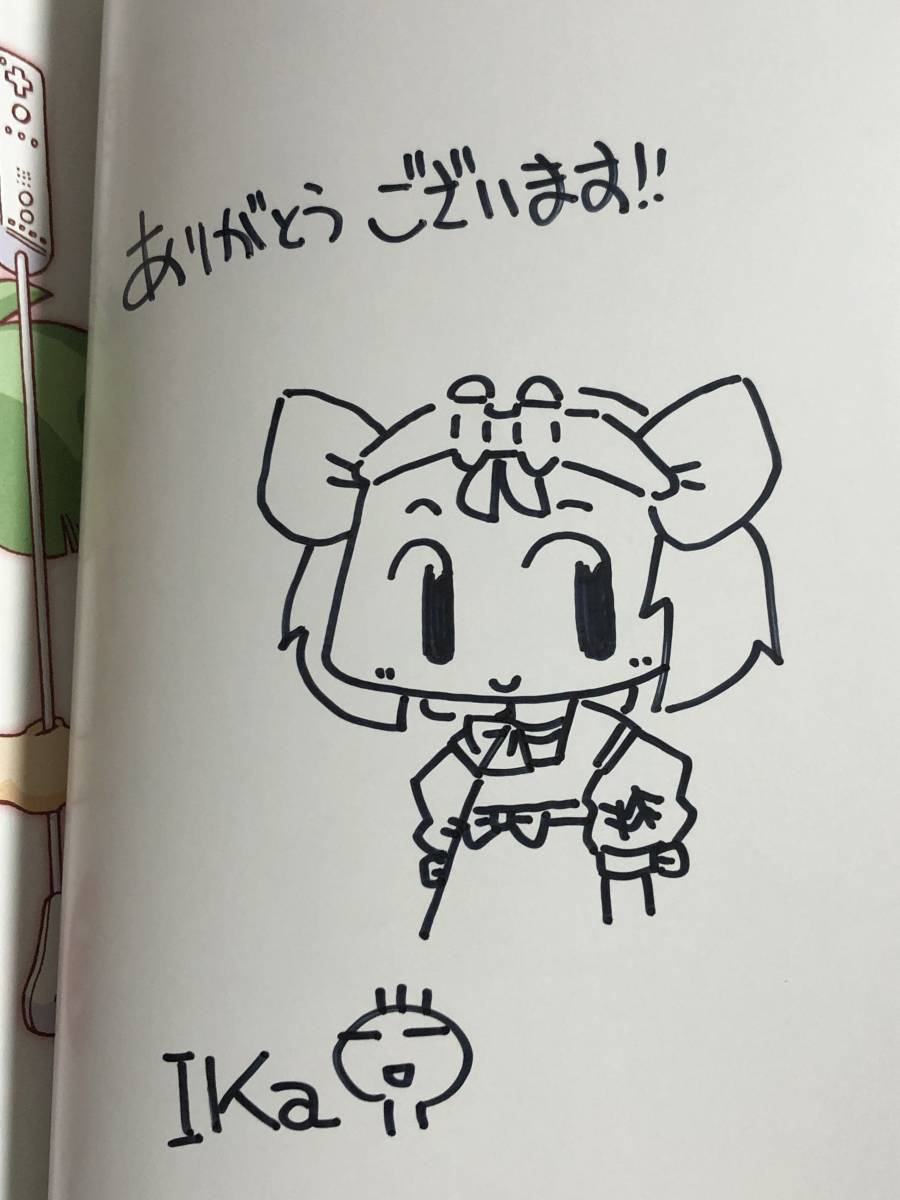 ありがとうございます!!
IKa